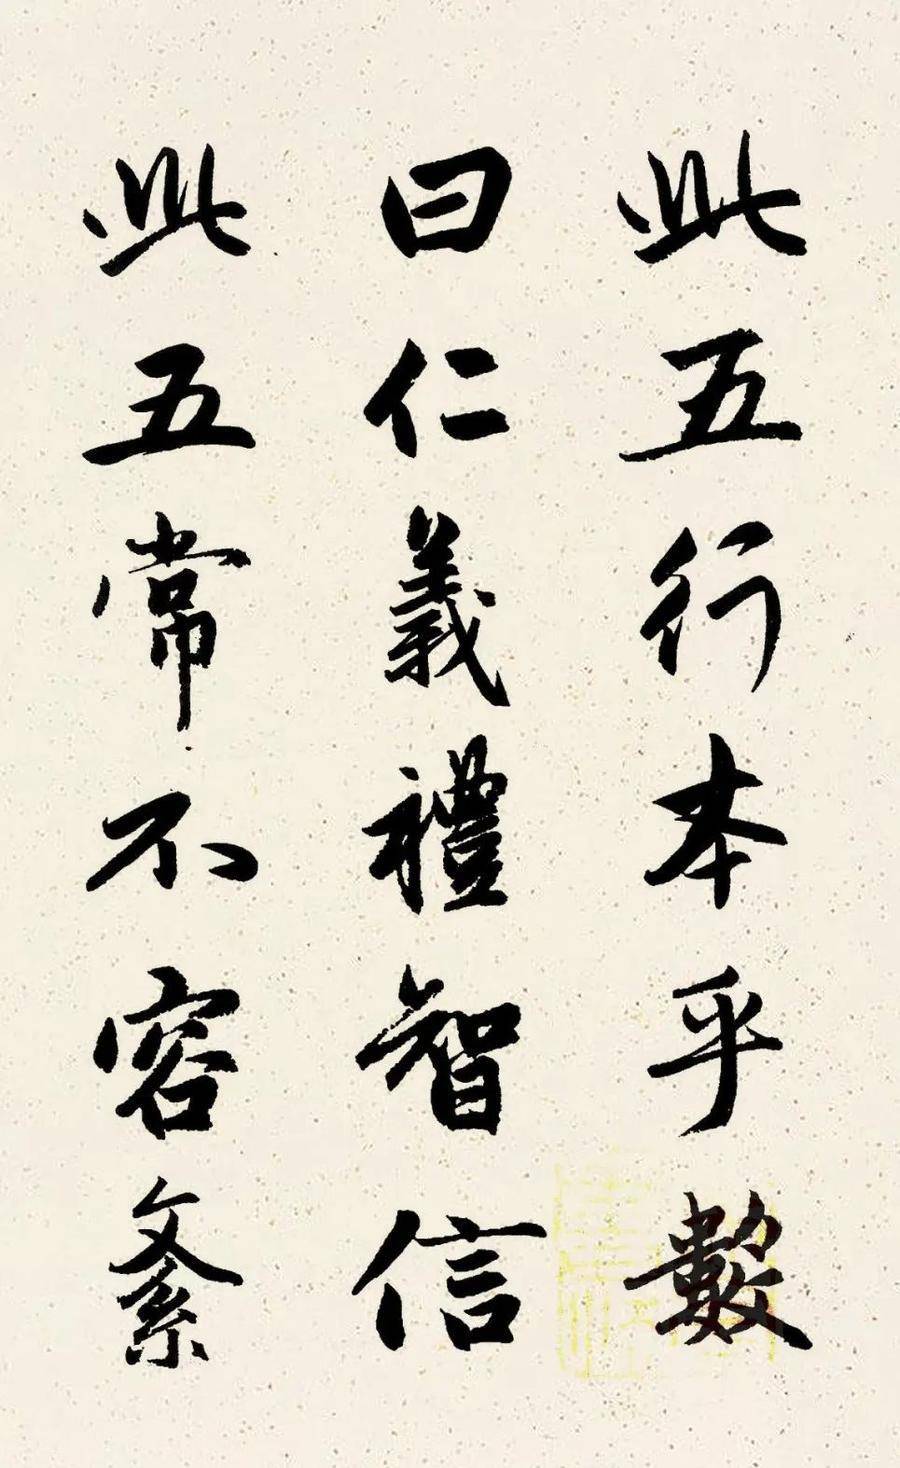 此五行本乎數
曰仁義禮智信
此五常不容紊